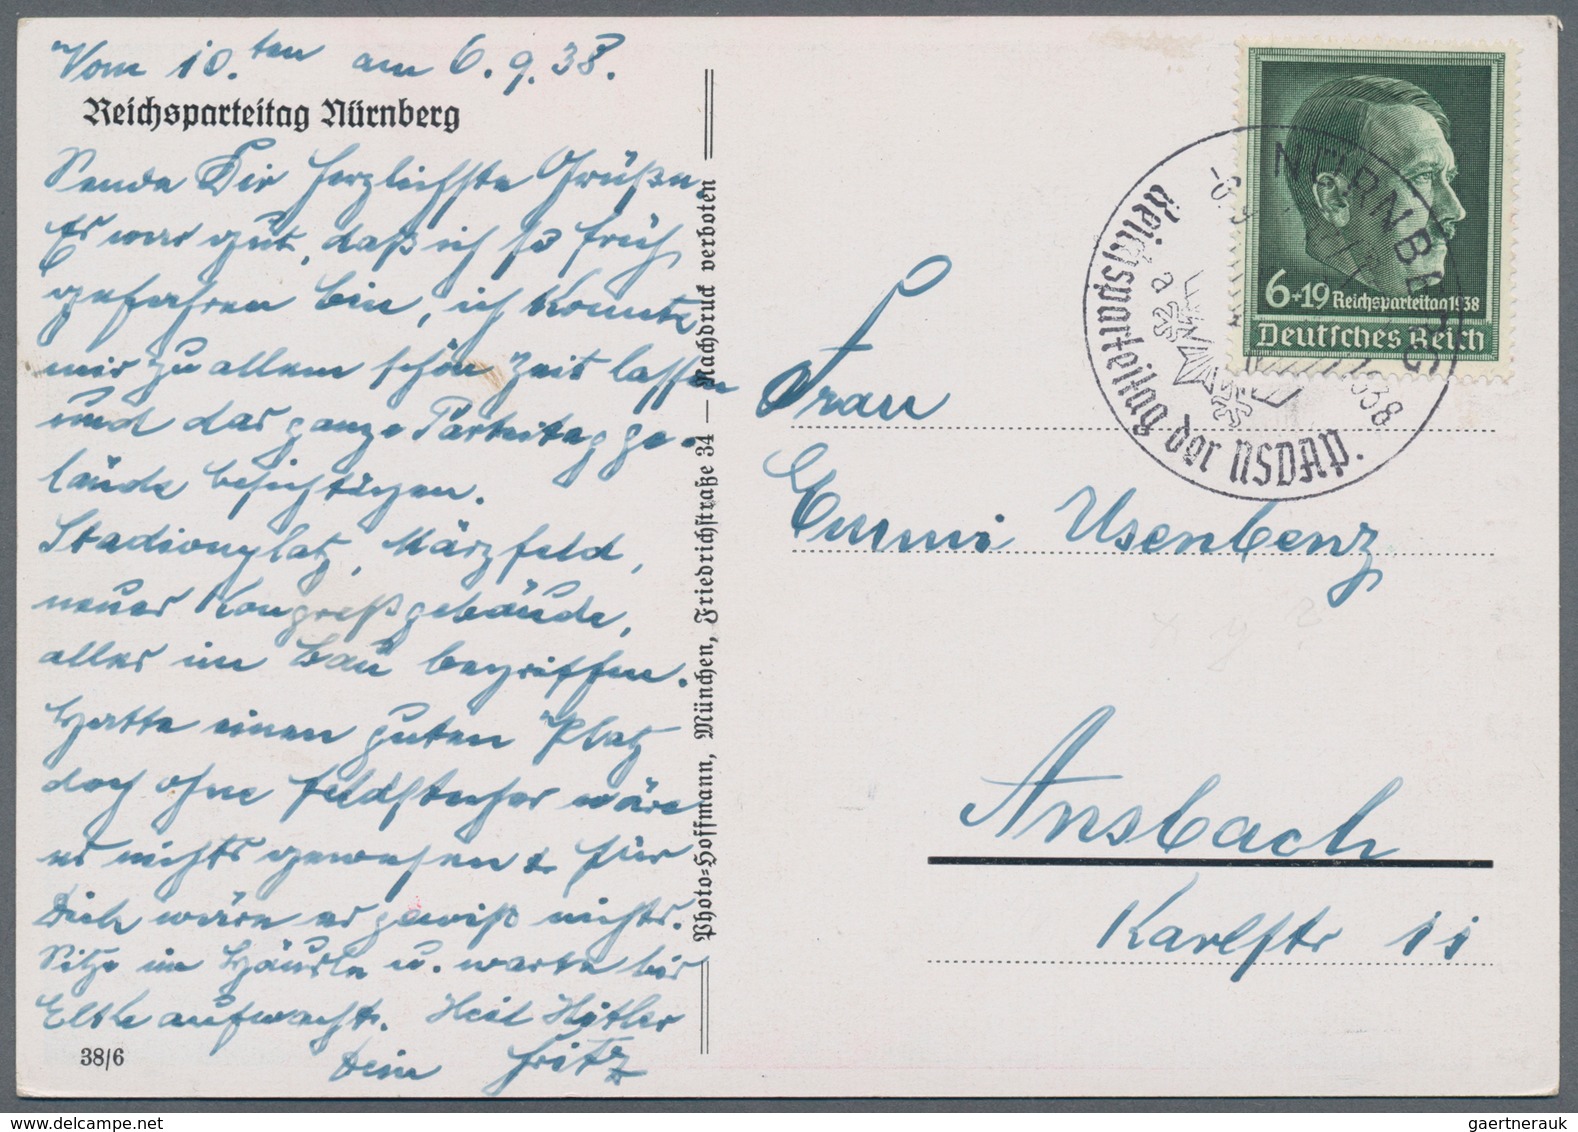 Vom 10.ten am 6.9.38.
Reichsparteitag Nürnberg
Sende Dir herzlichste Grüße.
Es war gut, daß ich so früh
gefahren bin, ich konnte
mir zu allem schön Zeit lassen
und das ganze Parteitagge-
lände besichtigen.
Stadionplatz, Märzfeld,
neues Kongreßgebäude,
alles im Bau begriffen.
Hatte einen guten Platz
doch ohne Feldstecher wäre
es nichts gewesen & für
Dich wäre es gewiß nichts.
Sitze im Häusle u. warte bis
aufwacht. Heil Hitler
Dein Fritz
38/6
Photo-Hoffmann, München, Friedrichstraße 34 — Nachdruck verboten
Frau
Emmi Usenbenz
Ansbach
Karlstr 11
6+19 Reichsparteitag 1938
Deutsches Reich
NÜRNBERG
Reichsparteitag der NSDAP.
a
1938
gaertnerauk@delcampe.net